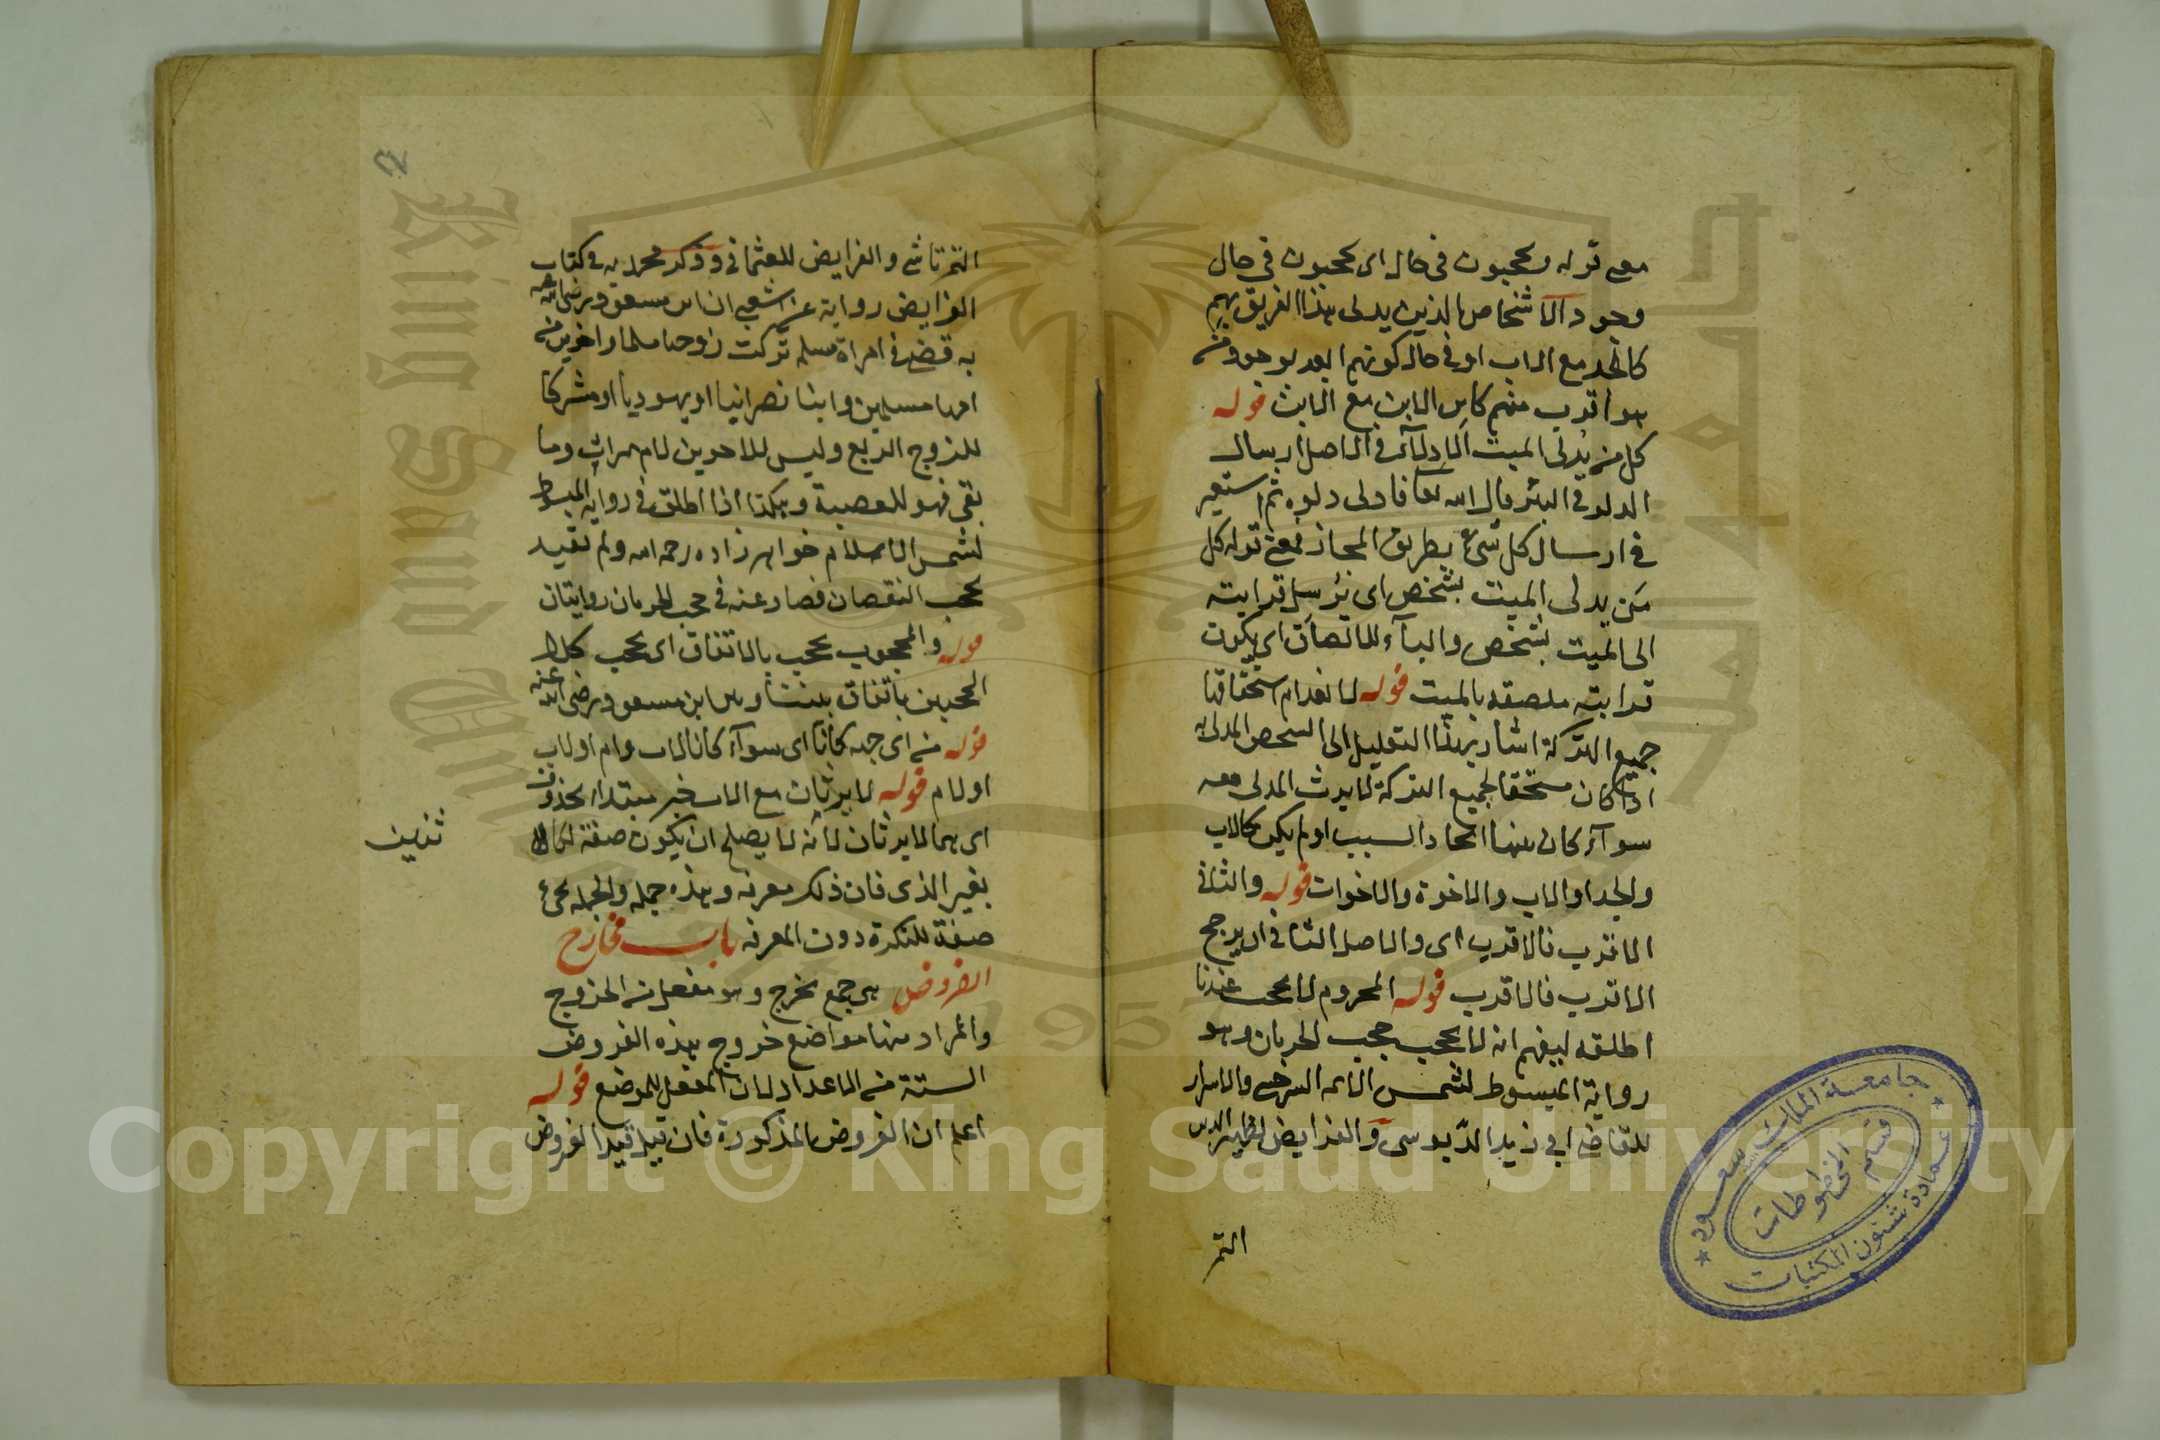 معنى قوله ويحجبون في حال اى يحجبون في حال
وجود الاشخاص الذين يدلى هذا الفريق بهم
كالجد مع الاب او في حال كونهم ابعد لوجود من
هو اقرب منهم كابن الابن مع الابن قوله
كل من يدلى الى الميت الادلاء في الاصل ارسال
الدلو في البئر قال الله تعا فادلى دلوه ثم استعير
في ارسال كل شىء بطريق المجاز فمعنى قوله كل
من يدلى الى الميت بشخص اى يرسل قرابته
الى الميت بشخص والباء للالصاق اى يكون
قرابته ملصقه بالميت قوله لانعدام استحقاقها
جميع التركة اشار بهذا التعليل الى الشخص المدلى به
اذا كان مستحقا لجميع التركة لا يرث المدلى معه
سواء كان بينهما اتحاد السبب او لم يكن كالاب
والجد او الاب والاخوة والاخوات قوله والثانى
الاقرب فالاقرب اى والاصل الثانى ان يرجح
الاقرب فالاقرب قوله المحروم لا يحجب عندنا
اطلقه ليفهم انه لا يحجب حجب الحرمان وهو
رواية المبسوط لشمس الائمه السرخسى والاسرار
للقاضى ابى زيد الدبوسى والفرايض لظهير الدين
التمر
التمرتاشى والفرايض للعثمانى وذكر محمد في كتاب
الفرايض رواية عن الشعبى ان ابن مسعود رضى الله عنه
به قضى في امراة مسلمه تركت زوجا مسلما واخوين من
امها مسلمين وابنا نصرانيا او يهوديا او مشركا
للزوج الربع وليس للاخوين لام ميراث وما
بقى فهو للعصبة وهكذا اذا اطلق في رواية المبسوط
لشمس الاسلام خواهر زاده رحمه الله ولم تقيد
بحجب النقصان فصار عنه في حجب الحرمان روايتان
قوله والمحجوب يحجب بالاتفاق اى يحجب كلا
الحجبين باتفاق بيننا وبين ابن مسعود رضى الله عنه
قوله من اى جهه كانا اى سواء كانا لاب وام او لاب
او لام قوله لا يرثان مع الاب خبر مبتداء محذوف
اى هما لا يرثان لانه لا يصلح ان يكون صفة
بغير الذى فان ذلك معرفه وهذه جمله والجمله تجىء
صفة للنكرة دون المعرفه باب مخارج
الفروض هى جمع مخرج وهو مفعل من الخروج
والمراد منها مواضع خروج هذه الفروض
الستة من الاعداد لان المفعل للموضع قوله
اعلم ان الفروض المذكورة فان قيل قيد الفروض
جامعة الملك سعود
قسم المخطوطات
عمادة شئون المكتبات
King Saud University
جامعة الملك
1957
Copyright © King Saud University